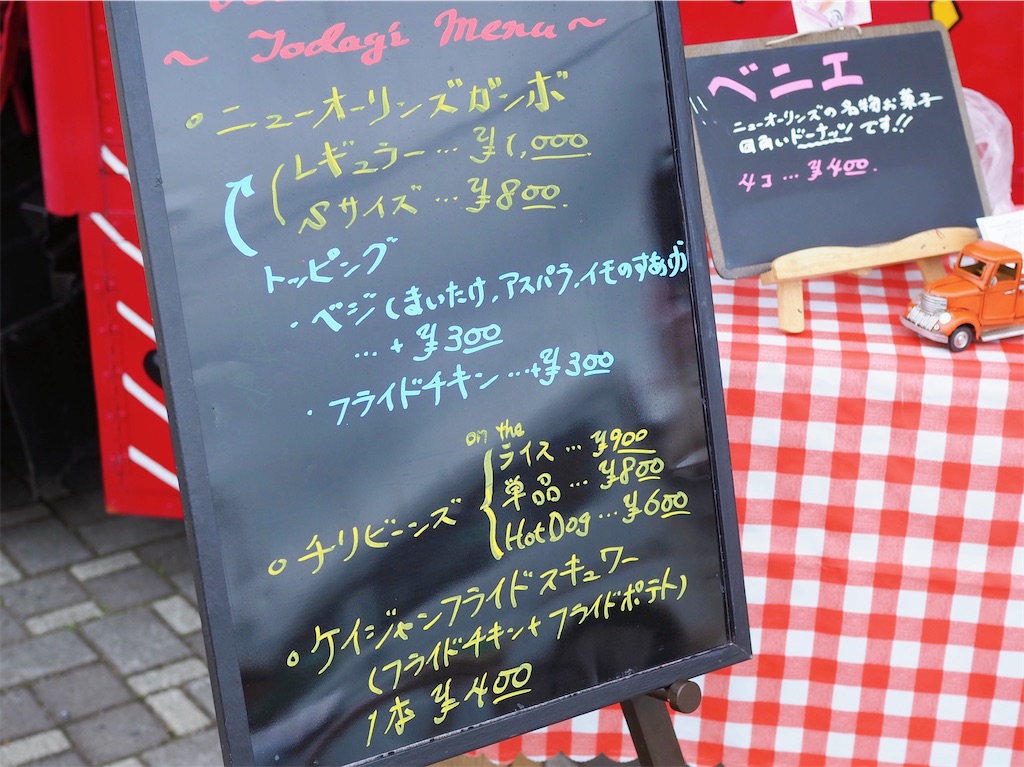 ~ Today's Menu ~
○ ニューオーリンズガンボ
レギュラー … ¥1,000.
Sサイズ … ¥800.
トッピング
・ベジ(まいたけ、アスパラ、イモのすあげ)
… + ¥300
・フライドチキン … +¥300
on the
ライス … ¥900
○ チリビーンズ
単品 … ¥800
HotDog … ¥600
○ ケイジャンフライドスキュワー
(フライドチキン + フライドポテト)
1本 ¥400
ベニエ
ニューオーリンズの名物お菓子
四角いドーナッツです!!
4コ … ¥400.